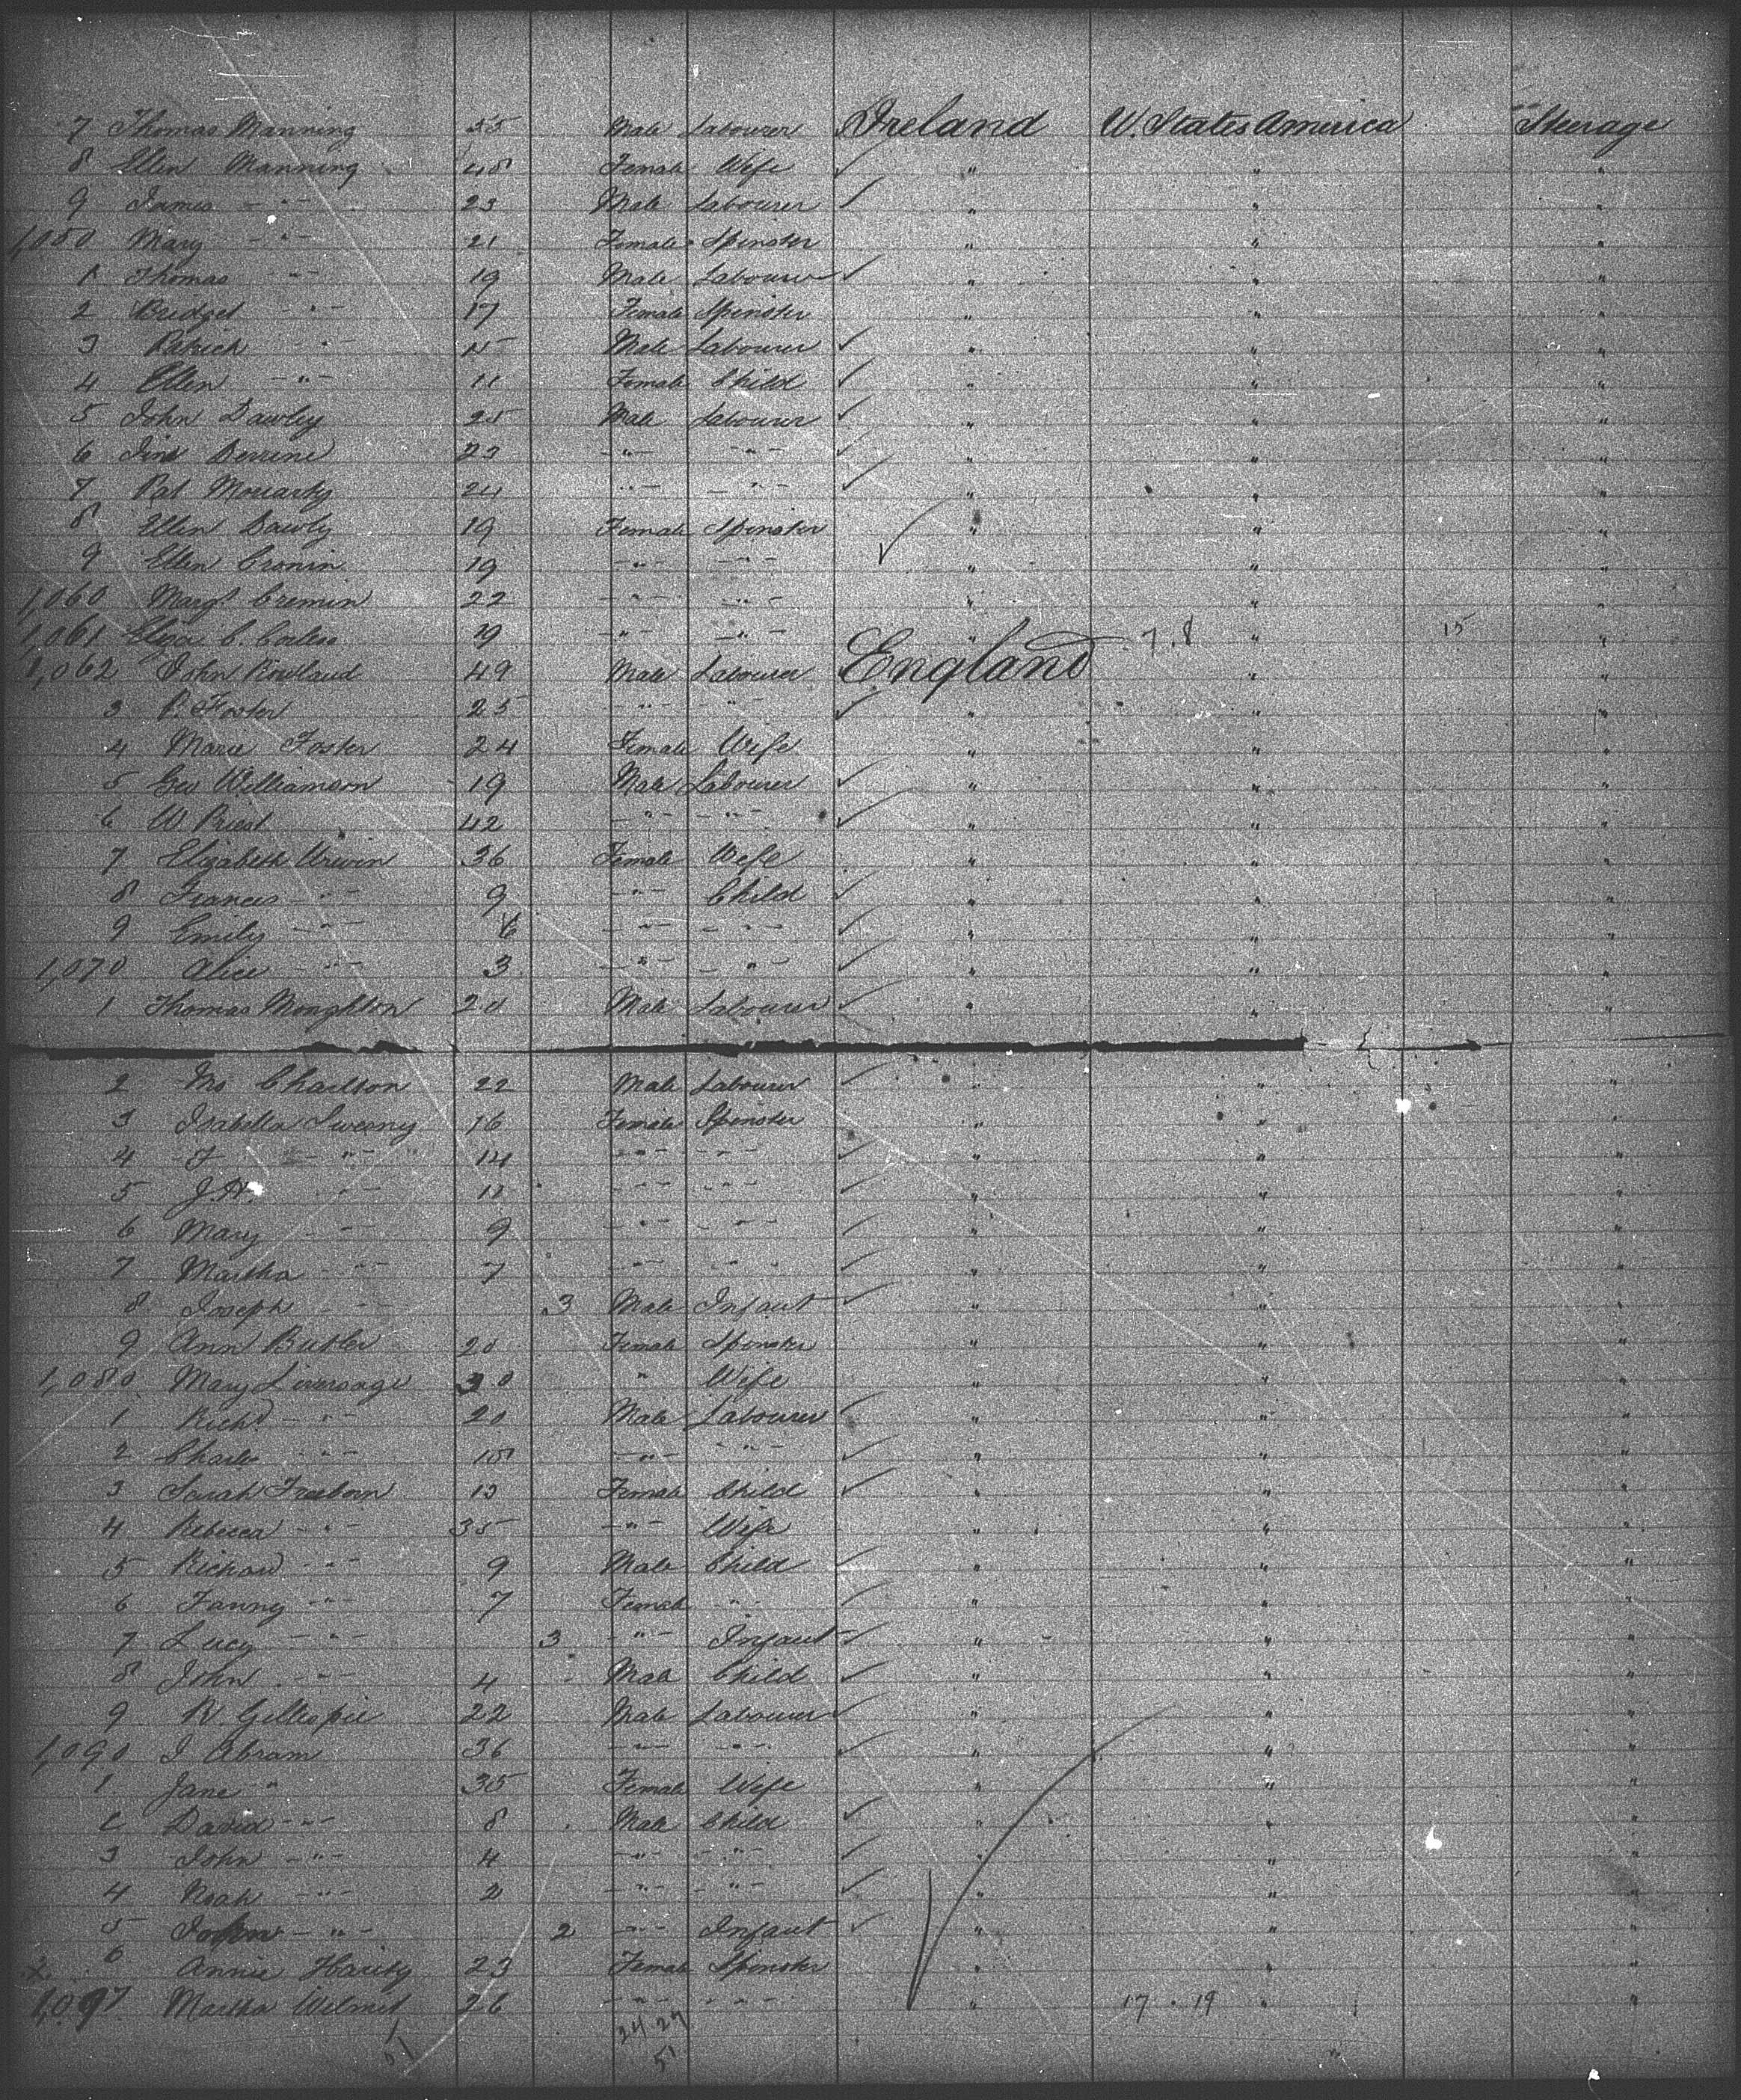 7 Thomas Manning 55 Male Labourer Ireland U. States America Steerage
8 Ellen Manning 48 Female Wife " " "
9 James -"- 23 Male Labourer " " "
1,050 Mary -"- 21 Female Spinster " " "
1 Thomas -"- 19 Male Labourer " " "
2 Bridget -"- 17 Female Spinster " " "
3 Patrick -"- 15 Male Labourer " " "
4 Ellen -"- 11 Female Child " " "
5 John Dawley 25 Male Labourer " " "
6 23 -"- -"- " " "
7 Pat Moriarty 24 -"- -"- " " "
8 Ellen Dawly 19 Female Spinster " " "
9 Ellen Cronin 19 -"- -"- " " "
1,060 Margt. Cremin 22 -"- -"- " " "
1,061 Eliza C. Corless 19 -"- -"- " 7.8 " 15 "
1,062 John Rowland 49 Male Labourer England " "
3 P. Foster 25 -"- -"- " " "
4 Marie Foster 24 Female Wife " " "
5 Geo Williamson 19 Male Labourer " " "
6 W Priest 42 -"- -"- " " "
7 Elizabeth Urwin 36 Female Wife " " "
8 Frances -"- 9 -"- Child " " "
9 Emily -"- 6 -"- -"- " " "
1,070 Alice -"- 3 -"- -"- " " "
1 Thomas Monghton 20 Male Labourer " " "
2 Charlton 22 Male Labourer " "
3 Isabella Sweeny 16 Female Spinster " " "
4 -"- 14 -"- -"- " " "
5 J.H. -"- 11 -"- -"- " " "
6 Mary -"- 9 -"- -"- " " "
7 Martha -"- 7 -"- -"- " " "
8 Joseph -"- 3 Male Infant " " "
9 Ann Butler 20 Female Spinster " " "
1,080 Mary Liversage 30 " Wife " " "
1 Richd. -"- 20 Male Labourer " " "
2 Charles -"- 18 -"- -"- " " "
3 Sarah Freeborn 13 Female Child " " "
4 Rebecca -"- 35 -"- Wife " " "
5 Richard -"- 9 Male Child " " "
6 Fanny -"- 7 Female -"- " " "
7 Lucy -"- 3 -"- Infant " " "
8 John -"- 4 Male Child " " "
9 R. Gillespie 22 Male Labourer " " "
1,090 J Abram 36 -"- -"- " " "
1 Jane " 35 Female Wife " " "
2 David -"- 8 Male Child " " "
3 John -"- 4 -"- -"- " " "
4 Noah -"- 2 -"- -"- " " "
5 -"- 2 -"- Infant " " "
x 6 Annie 23 Female Spinster " " "
1,097 Martha Wilmot 26 -"- -"- " 17.19 " "
24 27
51 51